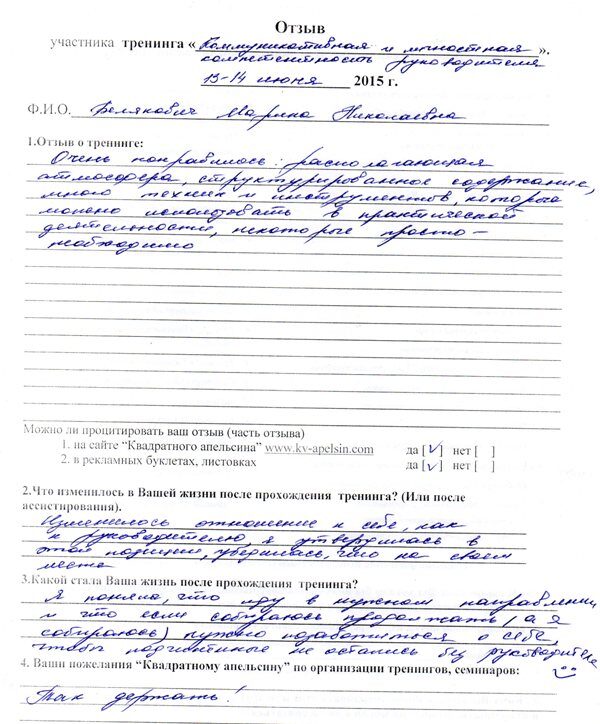 Отзыв
участника тренинга « Коммуникативная и личностная ».
компетентность руководителя
13-14 июня 2015 г.
Ф.И.О. Белякович Марина Николаевна
1.Отзыв о тренинге:
Очень понравилось: располагающая
атмосфера, структурированное содержание,
много техник и инструментов, которые
можно использовать в практической
деятельности, некоторые просто –
необходимо
Можно ли процитировать ваш отзыв (часть отзыва)
1. на сайте “Квадратного апельсина” www.kv-apelsin.com да [√] нет [ ]
2. в рекламных буклетах, листовках да [√] нет [ ]
2.Что изменилось в Вашей жизни после прохождения тренинга? (Или после
ассистирования).
Изменилось отношение к себе, как
к руководителю, я утвердилась в
этой позиции, убедилась, что на своем
месте
3.Какой стала Ваша жизнь после прохождения тренинга?
Я поняла, что иду в нужном направлении
и что если собираюсь продолжать (а я
собираюсь) нужно позаботиться о себе,
чтобы подчиненные не остались без руководителя
4. Ваши пожелания “Квадратному апельсину” по организации тренингов, семинаров:
Так держать!